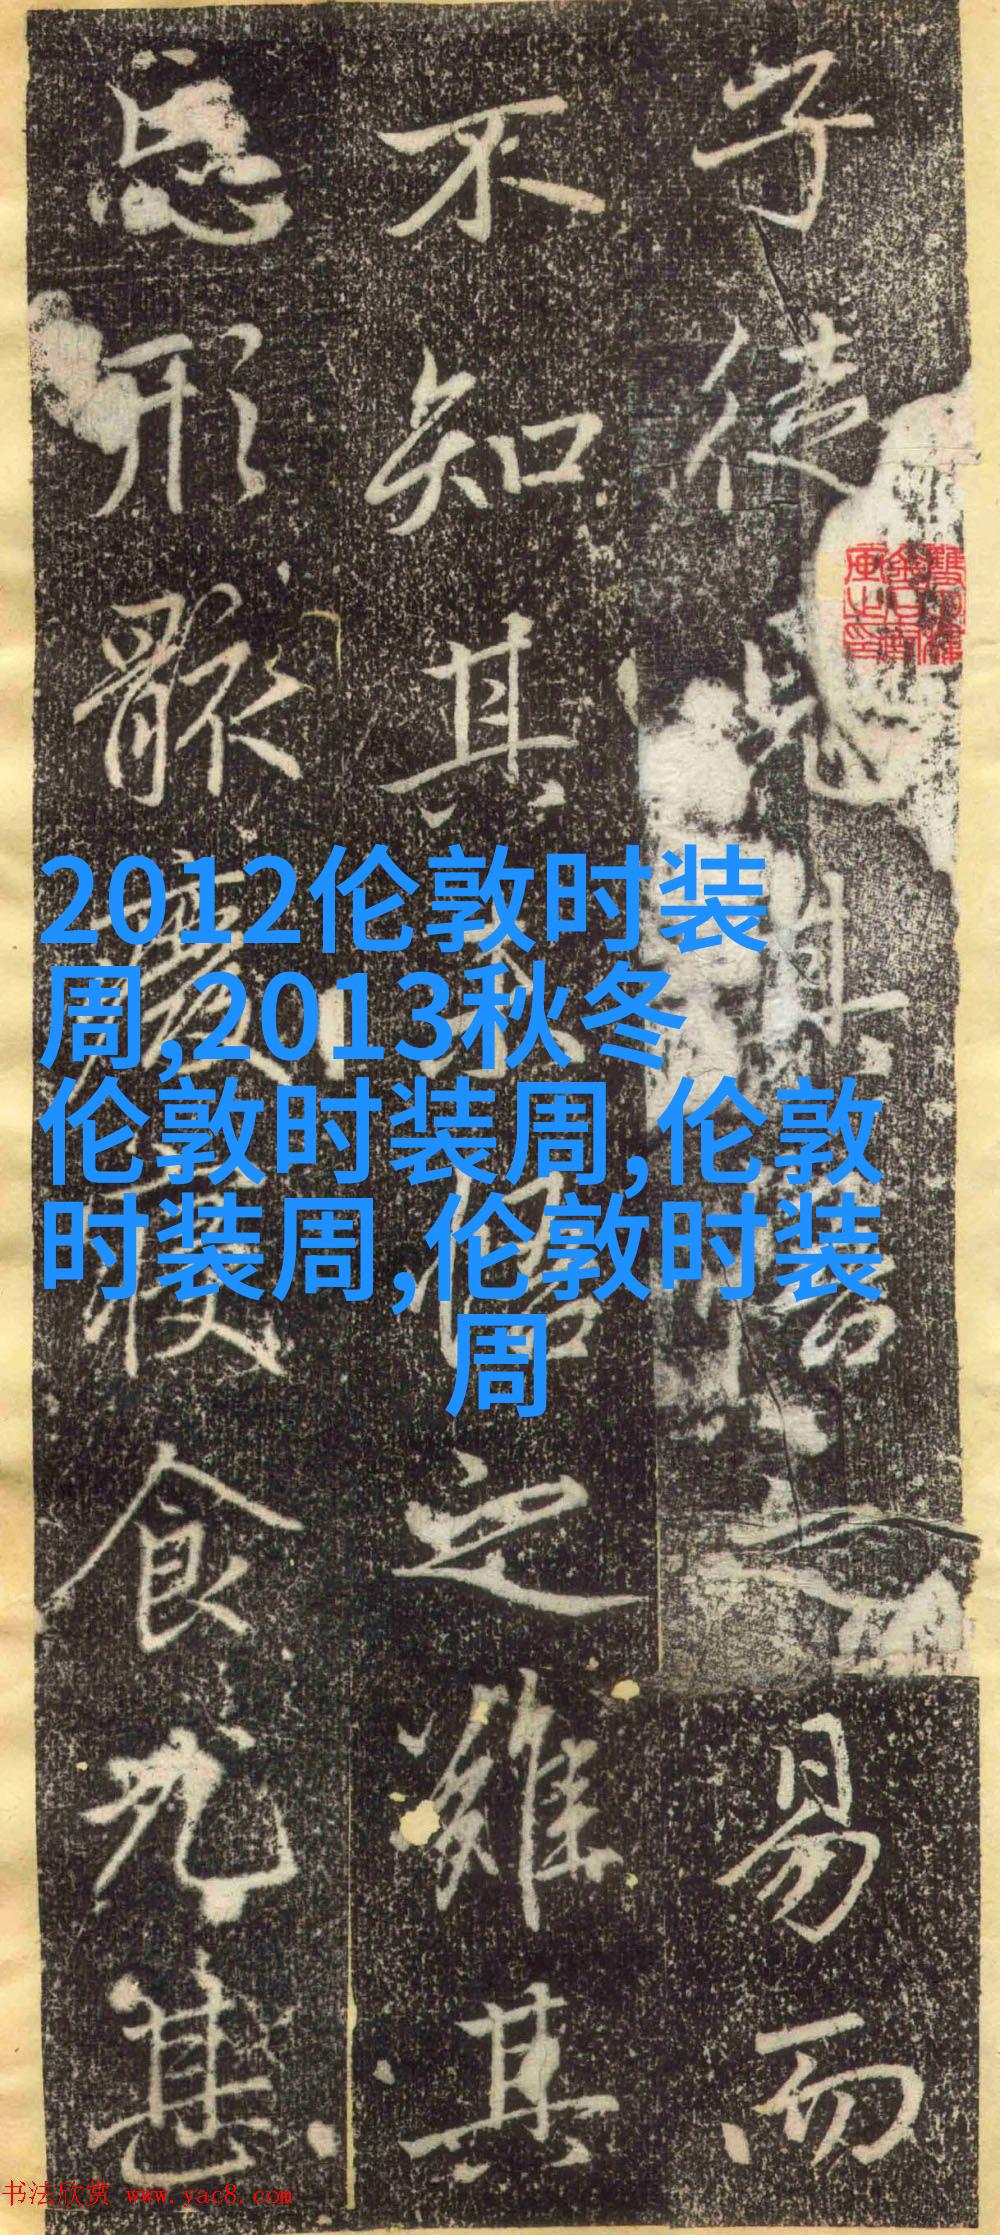 2012伦敦时装
周,2013秋冬
伦敦时装周,伦敦
时装周,伦敦时装
周
子徒見其之易而
不知其之難其
忘形骸廢寢食尤甚
书法欣赏 www.yac8.com